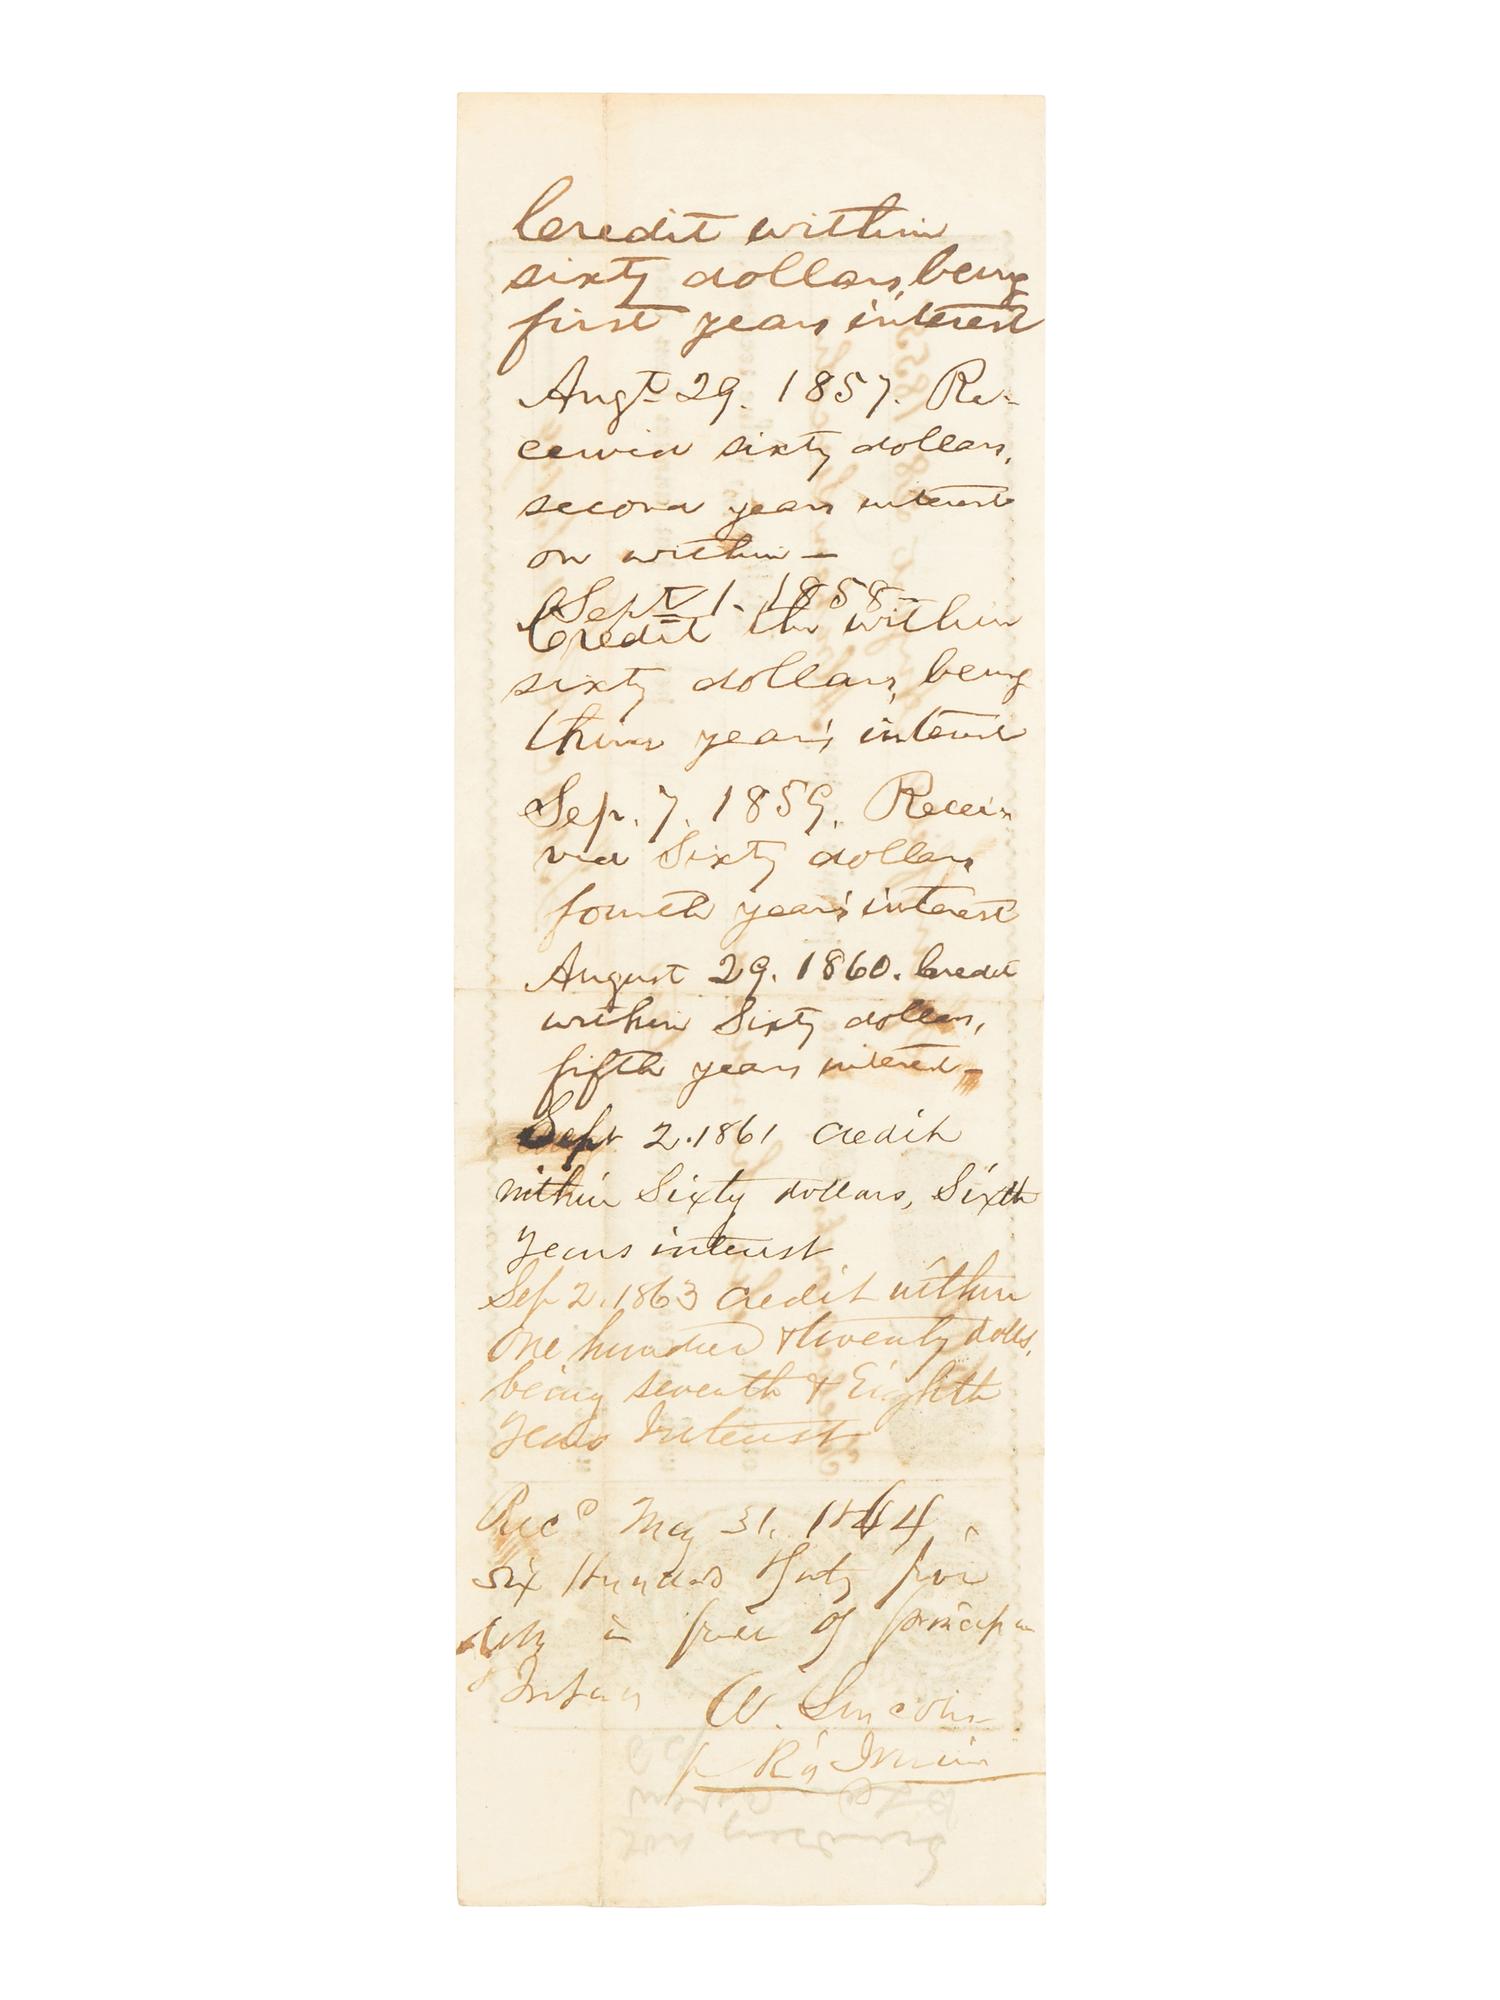 Credit within
sixty dollars, being
first years interest
Augt. 29. 1857. Re-
ceived sixty dollars,
second years interest
on within —
Sept. 1. 1858—
Credit the within
sixty dollars, being
third year's interest
Sep. 7. 1859. Recei-
ved Sixty dollars
fourth year's interest
August 29. 1860. Credit
within Sixty dollars,
fifth years interest—
Sept 2. 1861 Credit
within Sixty dollars, Sixth
years interest
Sep 2. 1863 Credit within
One hundred & twenty dolls,
being seventh & Eighth
years Interest
Recd May 31, 1864,
Six Hundred & forty five
in full of principal
& Interest A. Lincoln
p R. Irwin